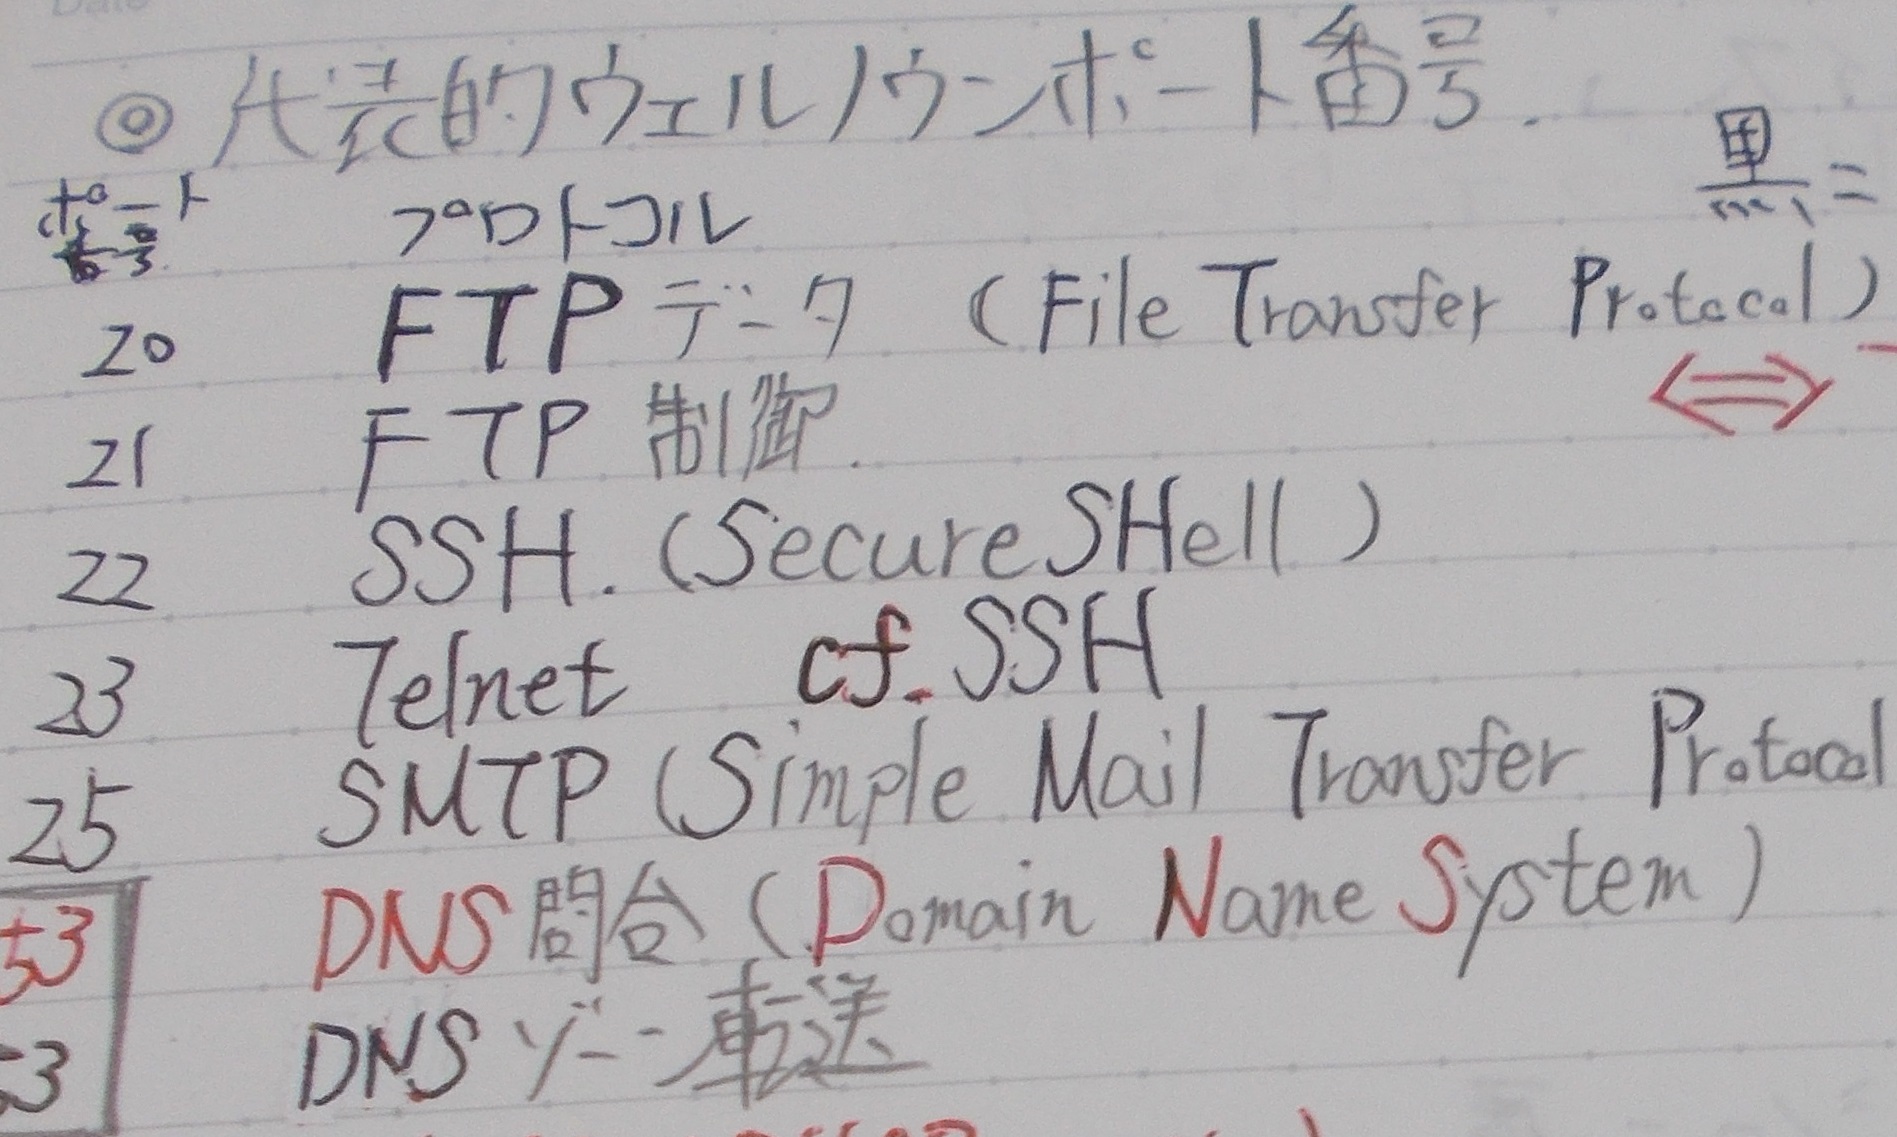 ◎代表的ウェルノウンポート番号.
黒=
ポート番号 プロトコル
20 FTPデータ (File Transfer Protocol)
⇔
21 FTP 制御.
22 SSH. (Secure SHell)
23 Telnet cf. SSH
25 SMTP (Simple Mail Transfer Protocol
53 DNS問合 (Domain Name System)
53 DNS ゾーン転送